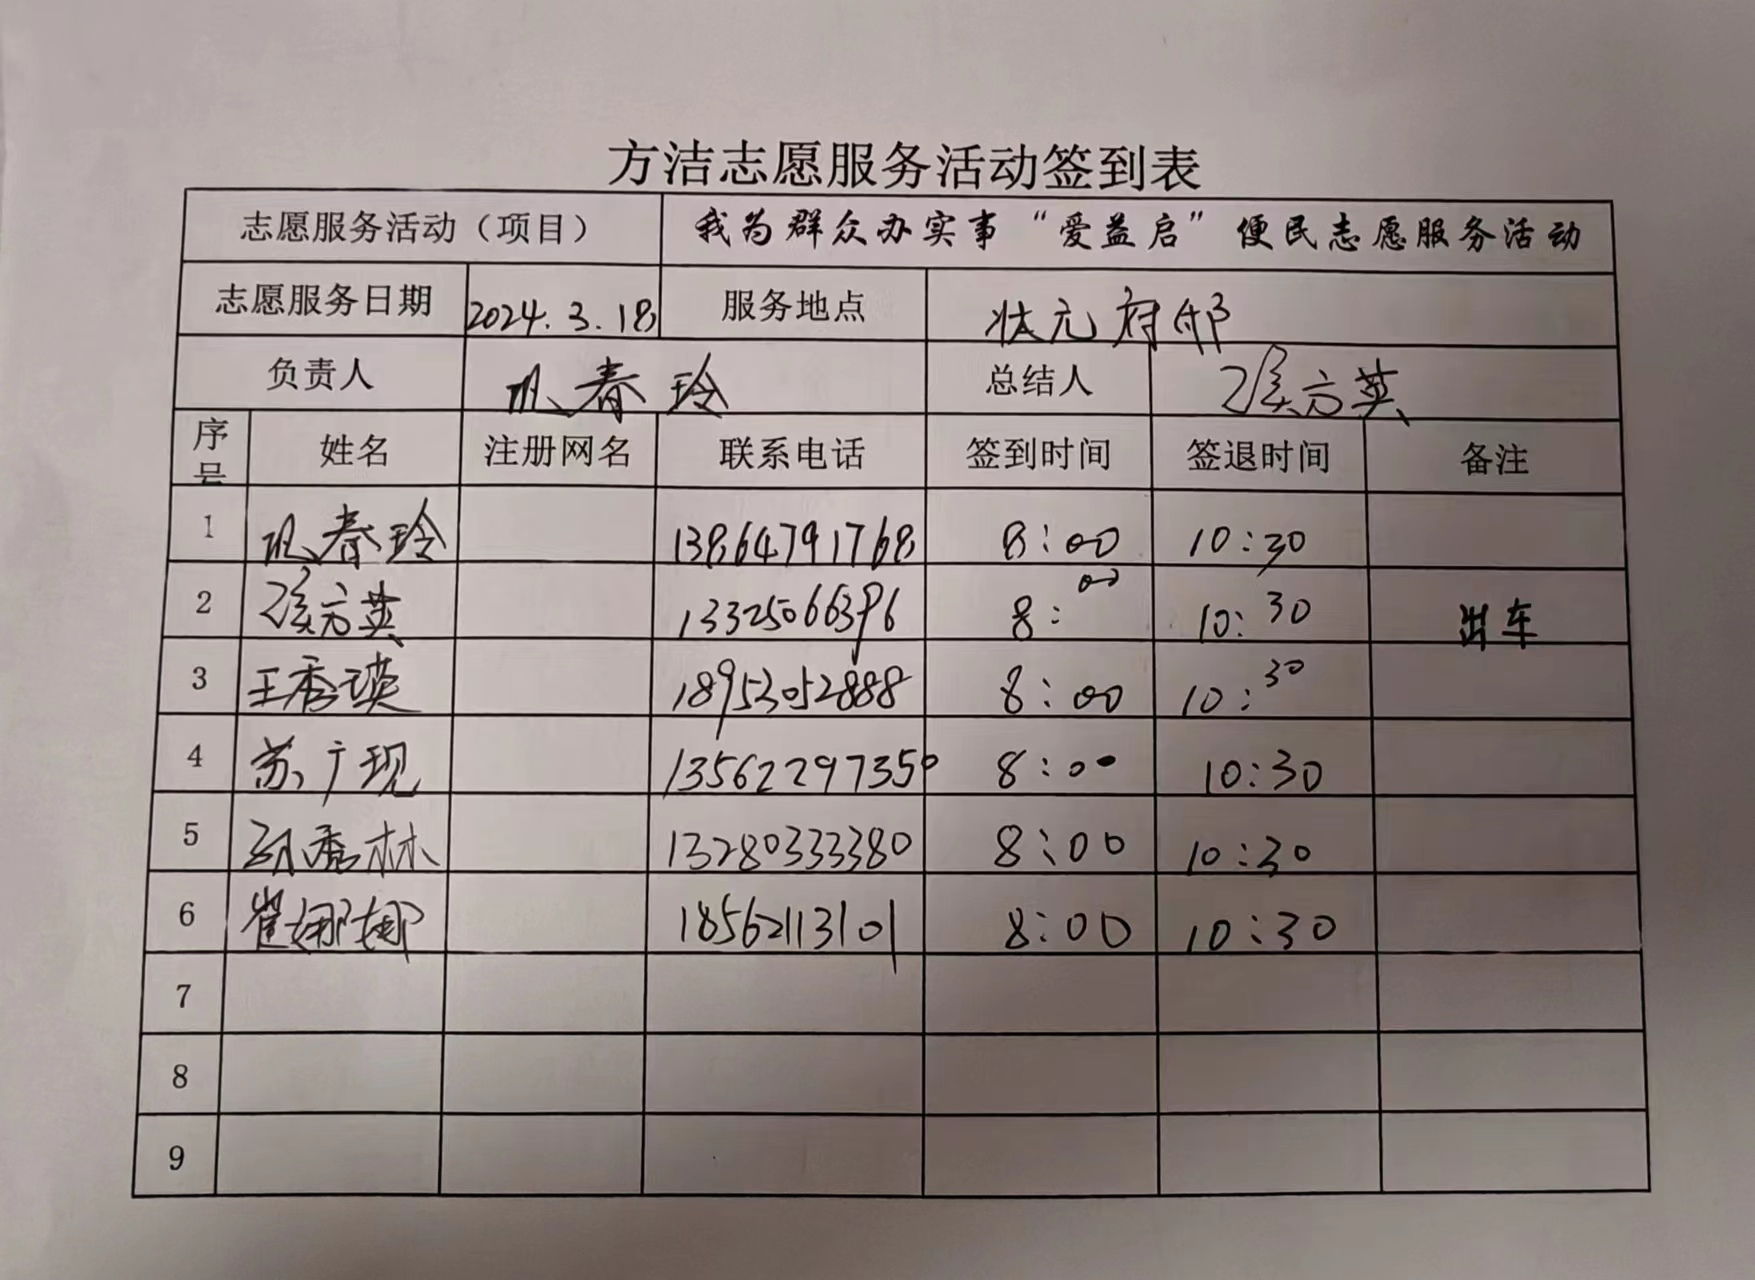 方洁志愿服务活动签到表
志愿服务活动（项目） 我为群众办实事“爱益启”便民志愿服务活动
志愿服务日期 2024.3.18 服务地点 状元府邸
负责人 春玲 总结人 侯方英
序号 姓名 注册网名 联系电话 签到时间 签退时间 备注
1 春玲 13864791768 8:00 10:30
2 侯方英 13325066396 8:00 10:30 出车
3 王秀瑛 18953052888 8:00 10:30
4 苏广现 13562297350 8:00 10:30
5 秀林 13280333380 8:00 10:30
6 崔娜娜 18562113101 8:00 10:30
7
8
9